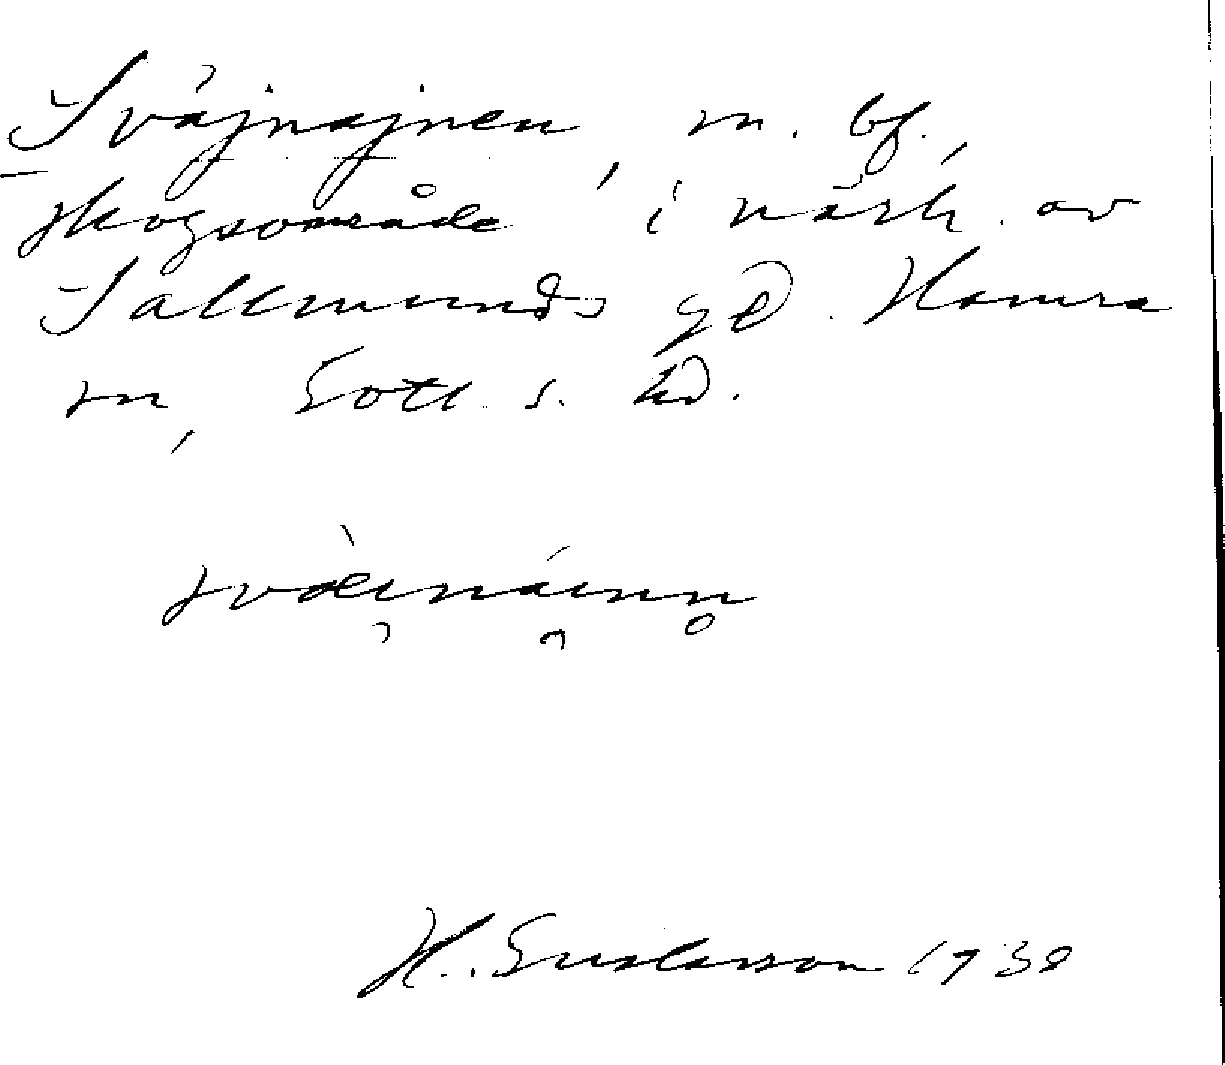 Svajnajnen, m. bf.,
skogsområde i närh. av
Sallmunds gd. Hamra
sn, Gotl. s. hd.
H. Gustavson 1938